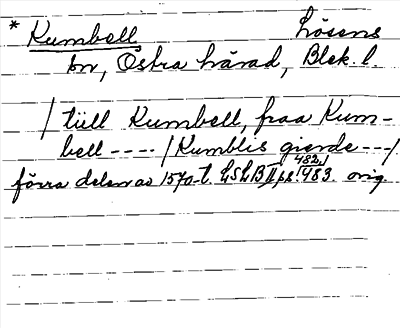 * Kumbell Lösens
by, Östra härad, Blek. l.
/tiill Kumbell, fraa Kum-
bell ---- /Kumblis gierde ---/
förra delen av 1570-t. LSLB II ps. 482, 483 orig.